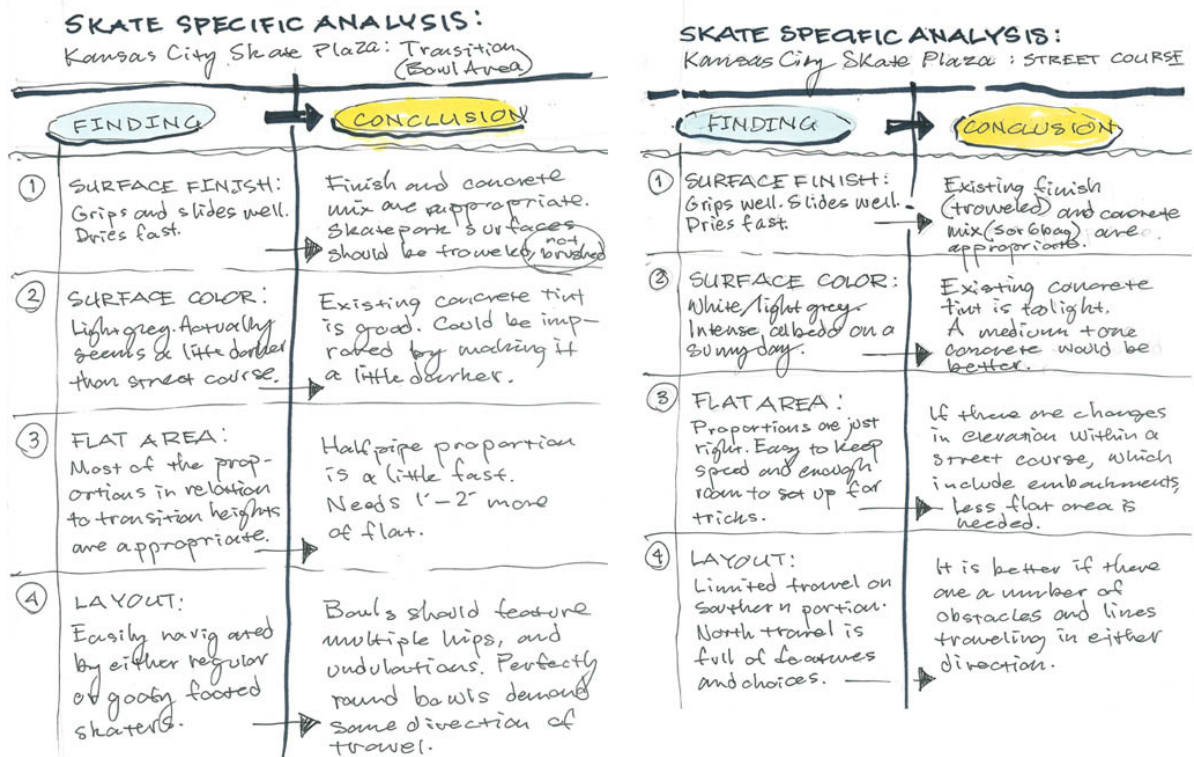 SKATE SPECIFIC ANALYSIS:
Kansas City Skate Plaza: Transition
(Bowl Area)
FINDING
CONCLUSION
1
SURFACE FINISH:
Grips and slides well.
Dries fast.
Finish and concrete
mix are appropriate.
Skatepark surfaces
should be troweled, not
brushed
2
SURFACE COLOR:
Light grey. Actually
seems a little darker
than street course.
Existing concrete tint
is good. Could be imp-
roved by making it
a little darker.
3
FLAT AREA:
Most of the prop-
ortions in relation
to transition heights
are appropriate.
Halfpipe proportion
is a little fast.
Needs 1'-2' more
of flat.
4
LAYOUT:
Easily navigated
by either regular
or goofy footed
skaters.
Bowls should feature
multiple hips, and
undulations. Perfectly
round bowls demand
same direction of
travel.
SKATE SPECIFIC ANALYSIS:
Kansas City Skate Plaza : STREET COURSE
FINDING
CONCLUSION
1
SURFACE FINISH:
Grips well. Slides well.
Dries fast.
Existing finish
(troweled) and concrete
mix (5 or 6 bag) are
appropriate.
2
SURFACE COLOR:
White/light grey.
Intense, albedo on a
sunny day.
Existing concrete
tint is too light.
A medium tone
concrete would be
better.
3
FLAT AREA:
Proportions are just
right. Easy to keep
speed and enough
room to set up for
tricks.
If there are changes
in elevation within a
street course, which
include embankments,
less flat area is
needed.
4
LAYOUT:
Limited travel on
southern portion.
North travel is
full of features
and choices.
It is better if there
are a number of
obstacles and lines
traveling in either
direction.